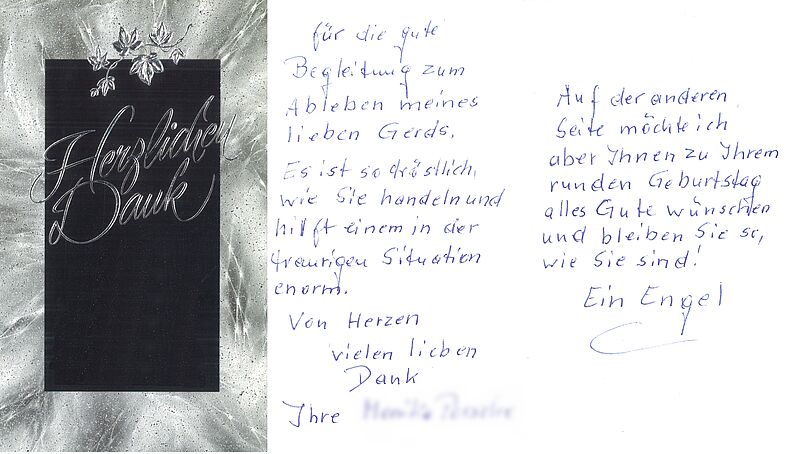 Herzlichen
Dank
für die gute
Begleitung zum
Ableben meines
lieben Gerds.
Es ist so dröstlich,
wie Sie handeln und
hilft einem in der
traurigen Situation
enorm.
Von Herzen
vielen lieben
Dank
Ihre
Auf der anderen
Seite möchte ich
aber Ihnen zu Ihrem
runden Geburtstag
alles Gute wünschen
und bleiben Sie so,
wie Sie sind!
Ein Engel